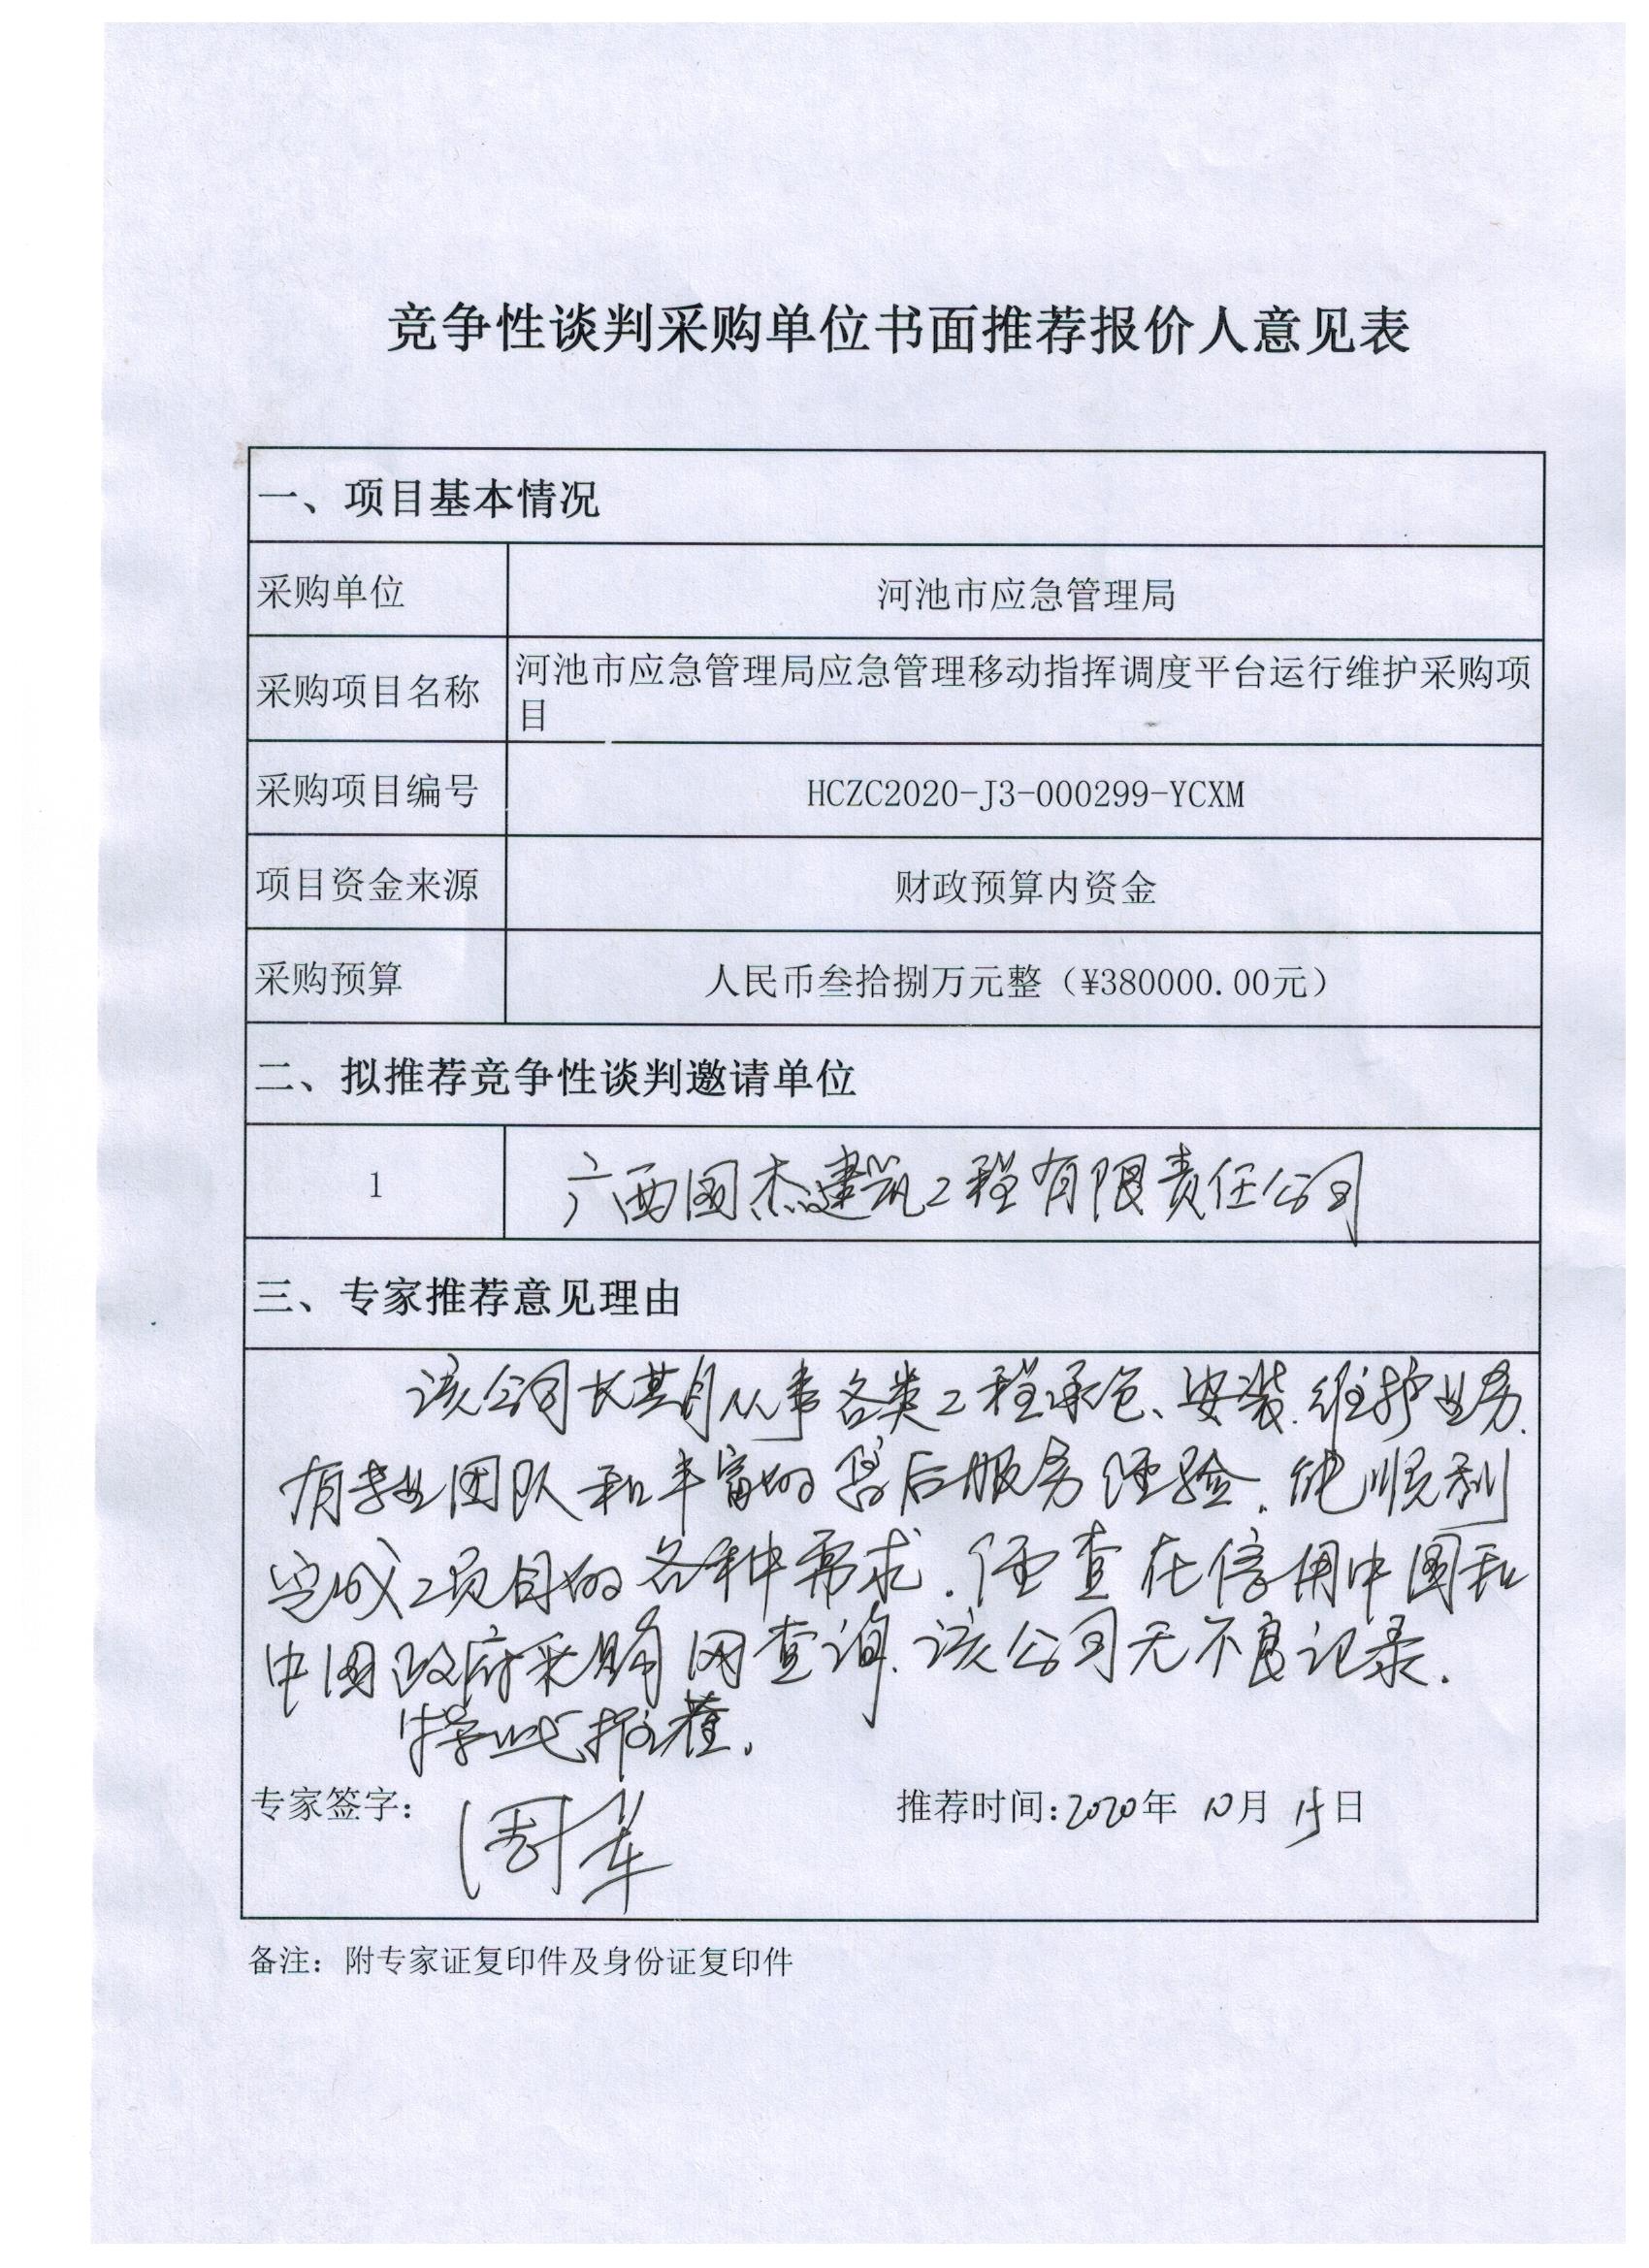 竞争性谈判采购单位书面推荐报价人意见表
一、项目基本情况
采购单位
河池市应急管理局
采购项目名称
河池市应急管理局应急管理移动指挥调度平台运行维护采购项
目
采购项目编号
HCZC2020-J3-000299-YCXM
项目资金来源
财政预算内资金
采购预算
人民币叁拾捌万元整（¥380000.00元）
二、拟推荐竞争性谈判邀请单位
1
广西国杰建筑工程有限责任公司
三、专家推荐意见理由
该公司长期从事各类工程承包、安装、维护业务.
有专业团队和丰富的售后服务经验.能顺利
完成工项目的各种需求.经查在信用中国和
中国政府采购网查询.该公司无不良记录.
特此推荐.
专家签字：
推荐时间：2020年 10月 15日
备注：附专家证复印件及身份证复印件